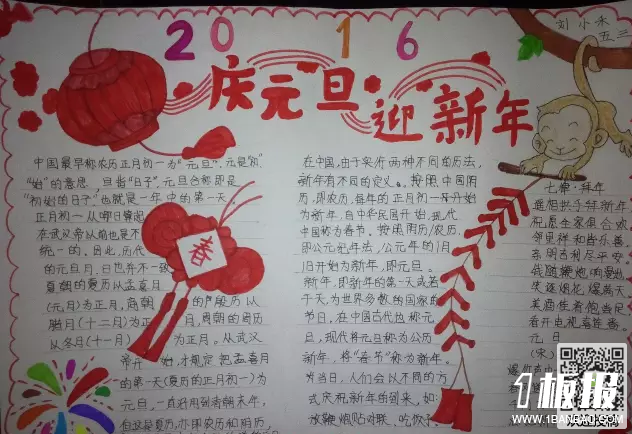 2016
刘小禾
五三
庆元旦
迎新年
中国最早称农历正月初一为"元旦",元是"初"
"始"的意思,旦指"日子",元旦合称即是
"初始的日子",也就是一年中的第一天。
正月初一从哪日算起,
在武帝以前也是不
统一的。因此,历代
的元旦月、日也并不一致
夏朝的夏历以孟喜月
(元月)为正月,商朝的殷历以
腊月(十二月)为正月,周朝的周历
以冬月(十一月)为正月。从武汉
帝开始,才规定把孟喜月
的第一天(夏历的正月初一)为
元旦,一直沿用到清朝末年,
但这是夏历,亦即农历和阴历
春
在中国,由于实行两种不同的历法,
新年有不同的定义。按照中国阴
历,即农历,每年的正月初一
为新年,自中华民国开始,现代
中国称为春节。按照阳历/农历,
即公元纪年法,公元年的1月
1日开始为新年,即元旦。
新年,即新年的第一天或若
干天,为世界多数的国家的
节日,在中国古代也称元
旦,现代将元旦称为公历
新年,将"春节"称为新年。
当日,人们会以不同的方
式庆祝新年的到来,如:
放鞭炮贴对联、吃饺子
七律·拜年
遥相拱手拜新年
祝愿全家俱合欢
邻里祥和皆乐善
亲朋吉利尽平安
美酒佳肴饱
看开电视喜连番
元日
(宋)
1板报
WWW.1BANBAO.COM